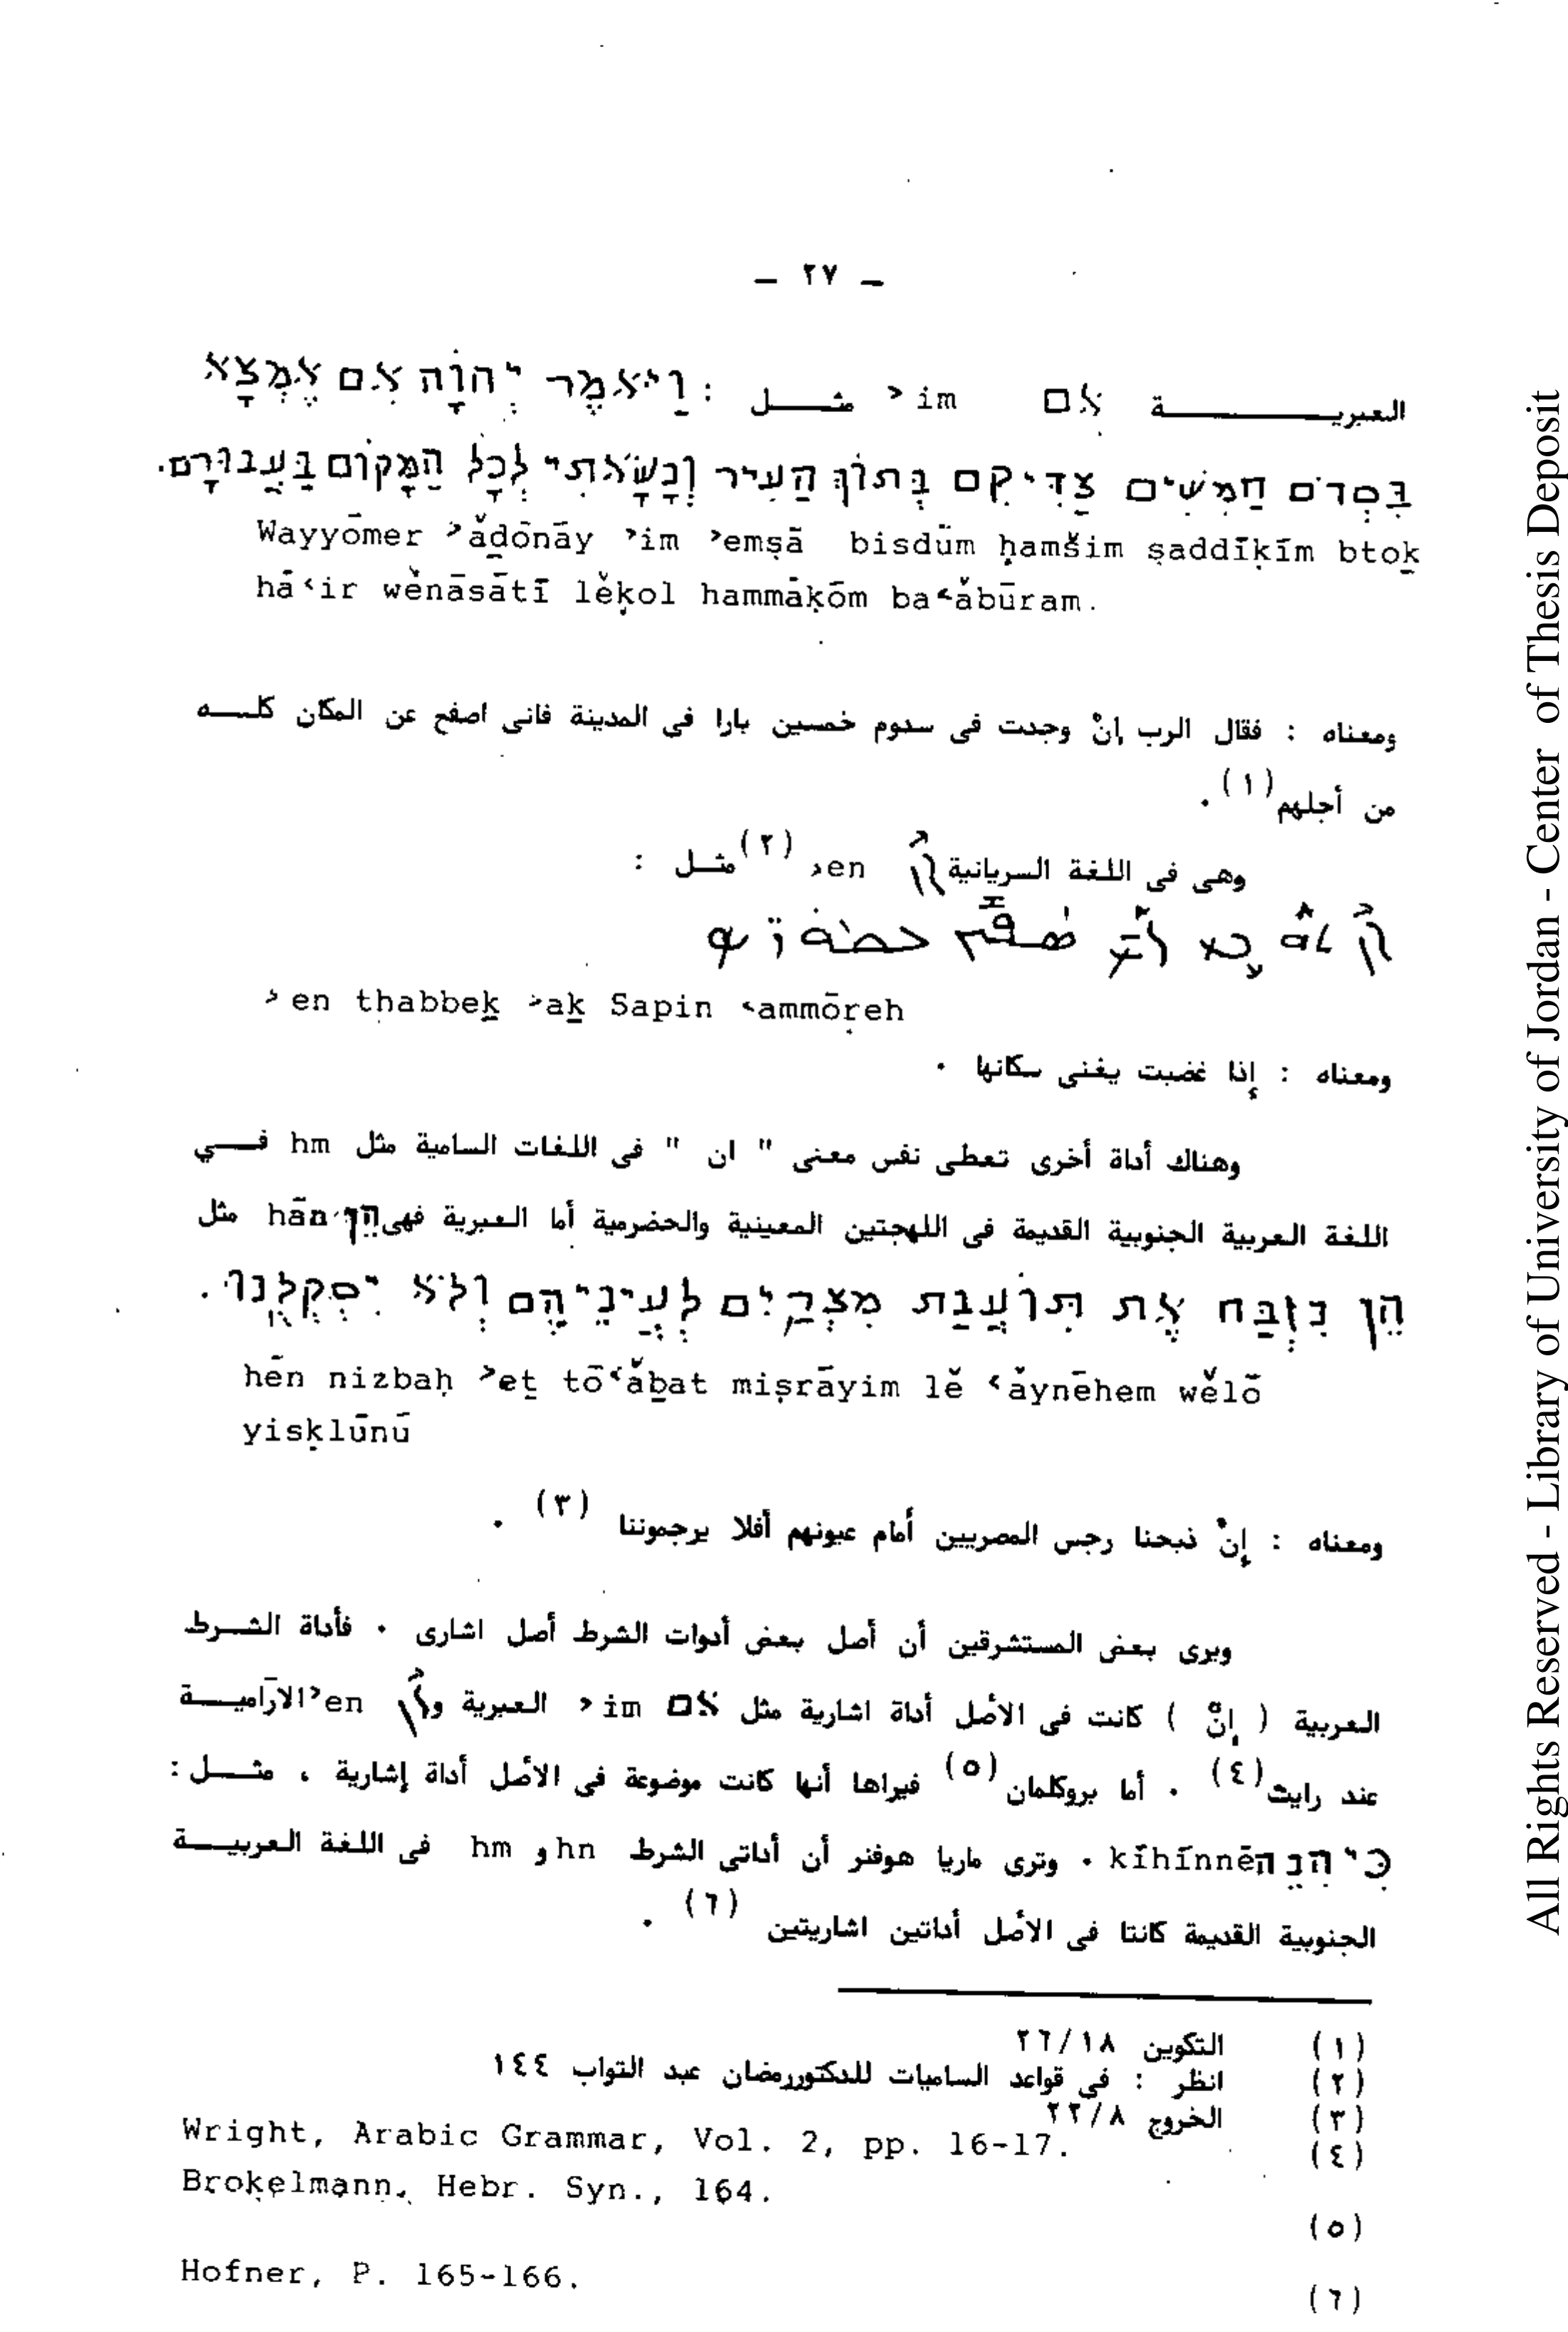 — ٢٧ —
العبريـــــــة אִם ʾim مثـــل : וַיֹּאמֶר יְהוָֹה אִם אֶמְצָא
בִּסְדֹם חַמִשִׁים צַדִּיקִם בְּתוֹךְ הַעִיר וְנָשָׂאתִי לְכָל הַמָּקוֹם בַּעֲבוּרָם.
Wayyōmer ʾădōnāy ʾim ʾemṣā bisdūm ḥamšim ṣaddīḳīm btoḵ
hāʿir wĕnāsātī lĕḳol hammāḳōm baʿăbūram.
ومعناه : فقال الرب إنْ وجدت فى سدوم خمسين بارا فى المدينة فانى اصفح عن المكان كلـــه
من أجلهم (١) .
وهى فى اللغة السريانية ʾen (٢) مثـل :
ʾen thabbeḵ ʾaḵ Sapin ʿammōṛeh
ومعناه : إذا غضبت يغنى سكانها .
وهناك أداة أخرى تعطى نفس معنى " ان " فى اللغات السامية مثل hm فـــي
اللغة العربية الجنوبية القديمة فى اللهجتين المعينية والحضرمية أما العبرية فهى הֵן hān مثل
הֵן נִזְבַּח אֶת תּוֹעֲבַת מִצְרַיִם לְעֵינֵיהֶם וְלֹא יִסְקְלֻנוּ .
hēn nizbaḥ ʾeṯ tōʿăḇat miṣrāyim lĕ ʿăynēhem wĕlō
yisḳlūnū
ومعناه : إنْ ذبحنا رجس المصريين أمام عيونهم أفلا يرجموننا (٣) .
ويرى بعض المستشرقين أن أصل بعض أدوات الشرط أصل اشارى . فأداة الشـرط
العربية ( إنّ ) كانت فى الأصل أداة اشارية مثل אִם ʾim العبرية و ʾen الآراميـــة
عند رايت (٤) . أما بروكلمان (٥) فيراها أنها كانت موضوعة فى الأصل أداة إشارية ، مثـــل :
כִּי הִנֵּה kīhīnnē . وترى ماريا هوفنر أن أداتى الشرط hn و hm فى اللغة العربيـــة
الجنوبية القديمة كانتا فى الأصل أداتين اشاريتين (٦) .
(١) التكوين ٢٦/١٨
(٢) انظر : فى قواعد الساميات للدكتوررمضان عبد التواب ١٤٤
(٣) الخروج ٢٢/٨
(٤) Wright, Arabic Grammar, Vol. 2, pp. 16-17.
(٥) Broḳelmann, Hebr. Syn., 164.
(٦) Hofner, P. 165-166.
All Rights Reserved - Library of University of Jordan - Center of Thesis Deposit